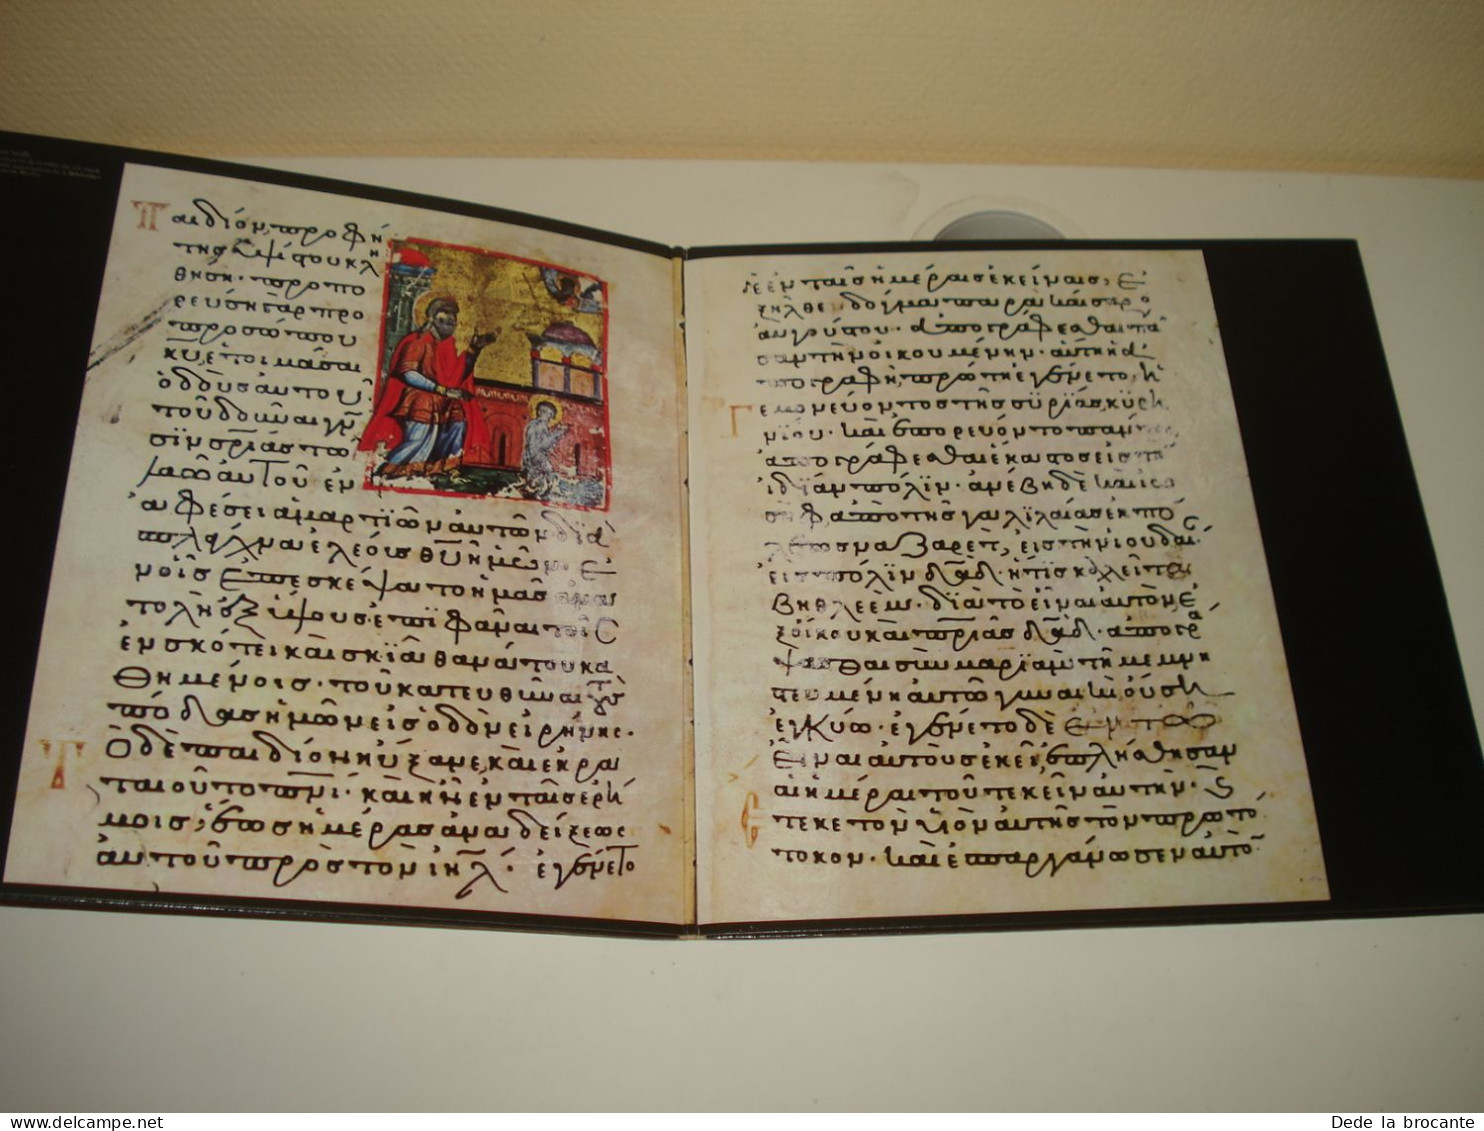 Παιδίον, προφή
της ὑψίστου κλη
θήση· προπο
ρεύση γὰρ πρὸ
προσώπου
κ̅υ̅, ἑτοιμάσαι
ὁδοὺς αὐτοῦ·
τοῦ δοῦναι γνῶ
σϊν σ̅ρ̅ΐας τῶ
λαῶ αὐτοῦ ἐν
ἀφέσει ἁμαρτϊῶν αὐτῶν· δϊὰ
σπλάγχνα ἐλέους θ̅υ̅ ἡμῶν· ἐν
οἷς ἐπεσκέψατο ἡμᾶς ἀνα
τολὴ ἐξ ὕψους· ἐπϊφᾶναι τοῖς
ἐν σκότει καὶ σκϊᾶ θανάτου κα
θημένοις· τοῦ κατευθῦναι τοὺς
πόδας ἡμῶν εἰς ὁδὸν εἰρήνης·
Τὸ δὲ παιδίον ηὔξανε, καὶ ἐκρα
ταιοῦτο π̅ν̅ι̅· καὶ ἦν ἐν ταῖς ἐρή
μοις, ἕως ἡμέρας ἀναδείξεως
αὐτοῦ πρὸς τὸν ι̅η̅λ̅· ἐγένετο
δὲ ἐν ταῖς ἡμέραις ἐκείναις, ἐ
ξῆλθε δόγμα παρὰ καίσαρο
αὐγούστου· ἀπογράφεσθαι πᾶ
σαν τὴν οἰκουμένην· αὕτη ἡ ἀ
πογραφὴ, πρώτη ἐγένετο, ἡ
γεμονεύοντος τῆς συρΐας, κυρη
νΐου· καὶ ἐπορεύοντο πάντες
ἀπογράφεσθαι ἕκαστος εἰς τὴν
ἰδΐαν πόλϊν· ἀνέβη δὲ καὶ ἰω
σὴφ ἀπὸ τῆς γαλϊλαίας ἐκ πό
λεως ναζαρὲτ, εἰς τὴν ἰουδαί
εἰς πόλϊν δ̅α̅δ̅· ἥτϊς καλεῖται
βηθλεὲμ· δϊὰ τὸ εἶναι αὐτὸν, ἐ
ξ οἴκου καὶ πατριᾶς δ̅α̅δ̅· ἀπογρά
ψασθαι σὺν μαρϊὰμ τῆ μεμνη
στευμένη αὐτῶ γυναικὶ οὔση
ἐγκύω· ἐγένετο δὲ ἐν τῶ
εἶναι αὐτοὺς ἐκεῖ, ἐπλήσθησαν
αἱ ἡμέραι τοῦ τεκεῖν αὐτήν· καὶ
ἔτεκε τὸν υἱὸν αὐτῆς τὸν πρωτό
τοκον· καὶ ἐσπαργάνωσεν αὐτό
Dede la brocante